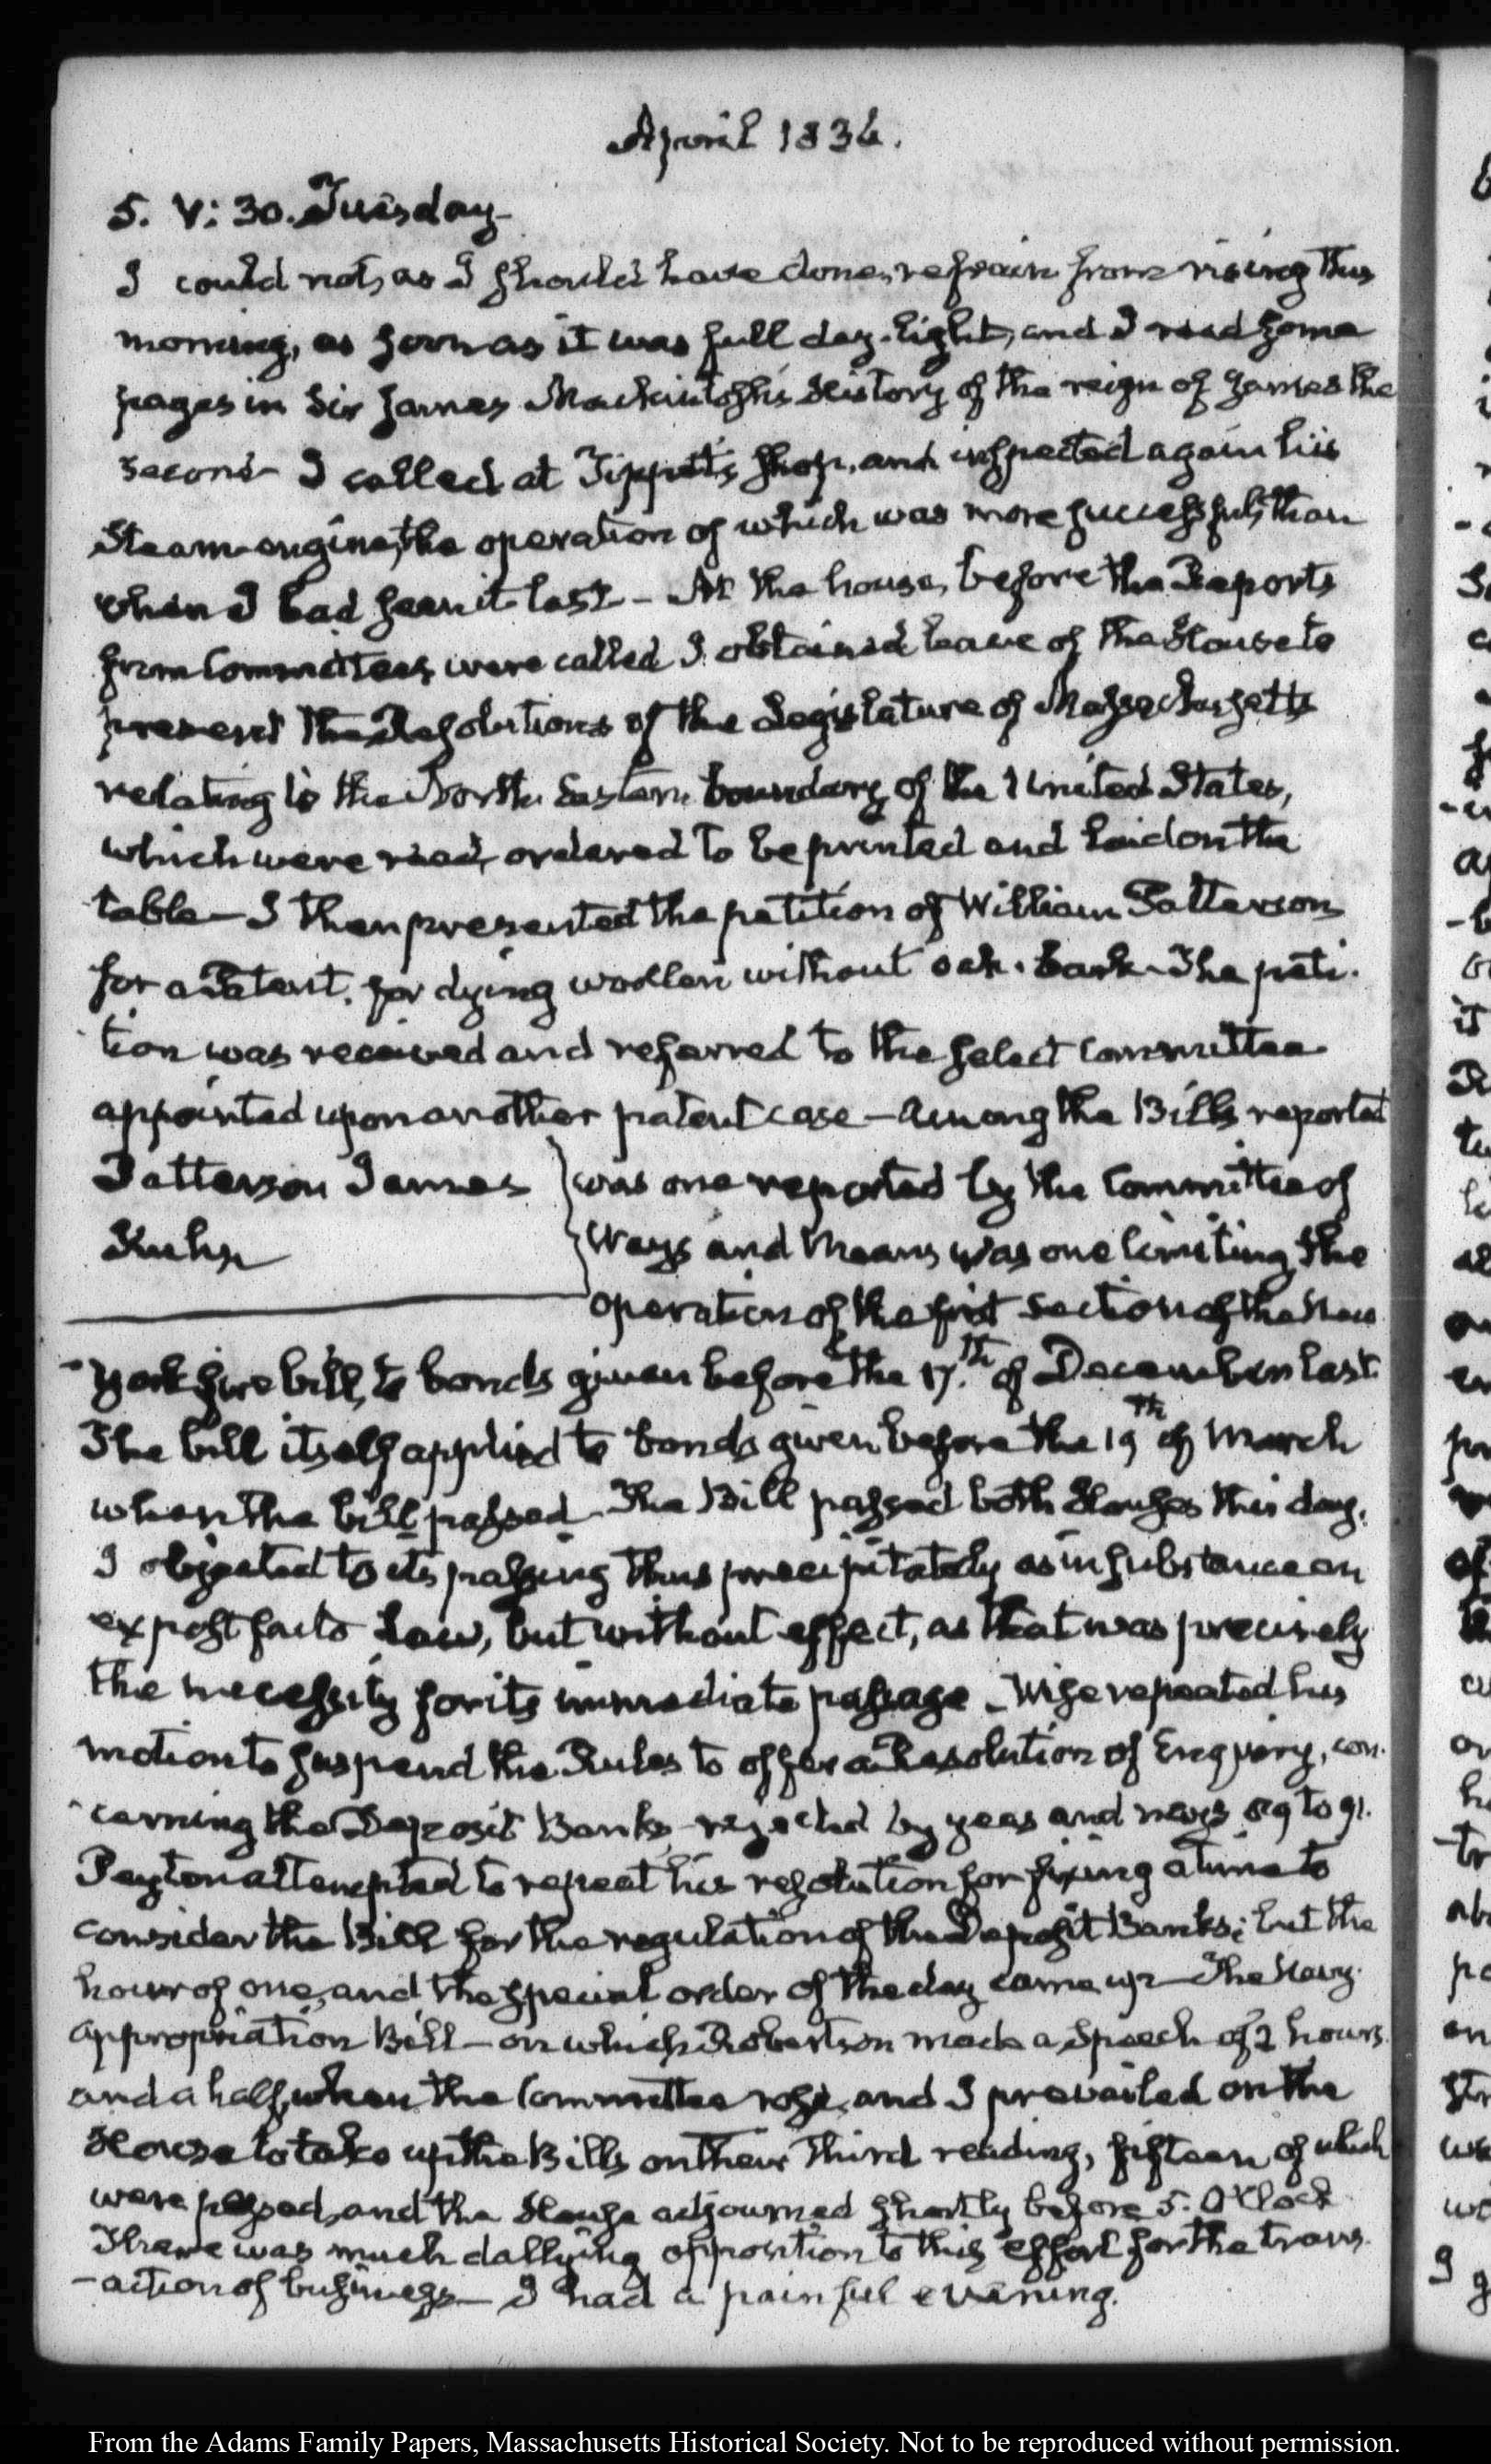 April 1836.
5. V: 30. Tuesday
I could not, as I should have done, refrain from rising this
morning, as soon as it was full day-light, and I read some
pages in Sir James Mackintosh's History of the reign of James the
second — I called at Tippett's shop, and inspected again his
Steam-engine, the operation of which was more successful, than
when I had seen it last — At the house, before the Reports
from Committees were called I obtained leave of the House to
present the Resolutions of the Legislature of Massachusetts
relating to the North Eastern boundary of the United States,
which were read, ordered to be printed and laid on the
table — I then presented the petition of William Patterson
for a Patent for dying woollen without oak-bark — The peti-
tion was received and referred to the select Committee
appointed upon another patent case — Among the Bills reported
Patterson James
Kuhn
was one reported by the Committee of
Ways and Means was one limiting the
operation of the first section of the New
-York fire bill, to bonds given before the 17th of December last.
The bill itself applied to bonds given before the 19th of March
when the bill passed. The Bill passed both Houses this day.
I objected to its passing thus precipitately as in substance an
ex post facto Law, but without effect, as that was precisely
the necessity for its immediate passage — Wise repeated his
motion to suspend the Rules to offer a Resolution of Enquiry, con-
-cerning the Deposit Banks — rejected by yeas and nays 89 to 91.
Peyton attempted to repeat his resolution for fixing a time to
consider the Bill for the regulation of the Deposit Banks; but the
hour of one, and the special order of the day came up — The Navy
appropriation Bill — on which Robertson made a Speech of 2 hours
and a half, when the Committee rose, and I prevailed on the
House to take up the Bills on their third reading, fifteen of which
were passed, and the House adjourned shortly before 5. O'Clock
There was much dallying opposition to this effort for the trans-
-action of business — I had a painful evening.
From the Adams Family Papers, Massachusetts Historical Society. Not to be reproduced without permission.